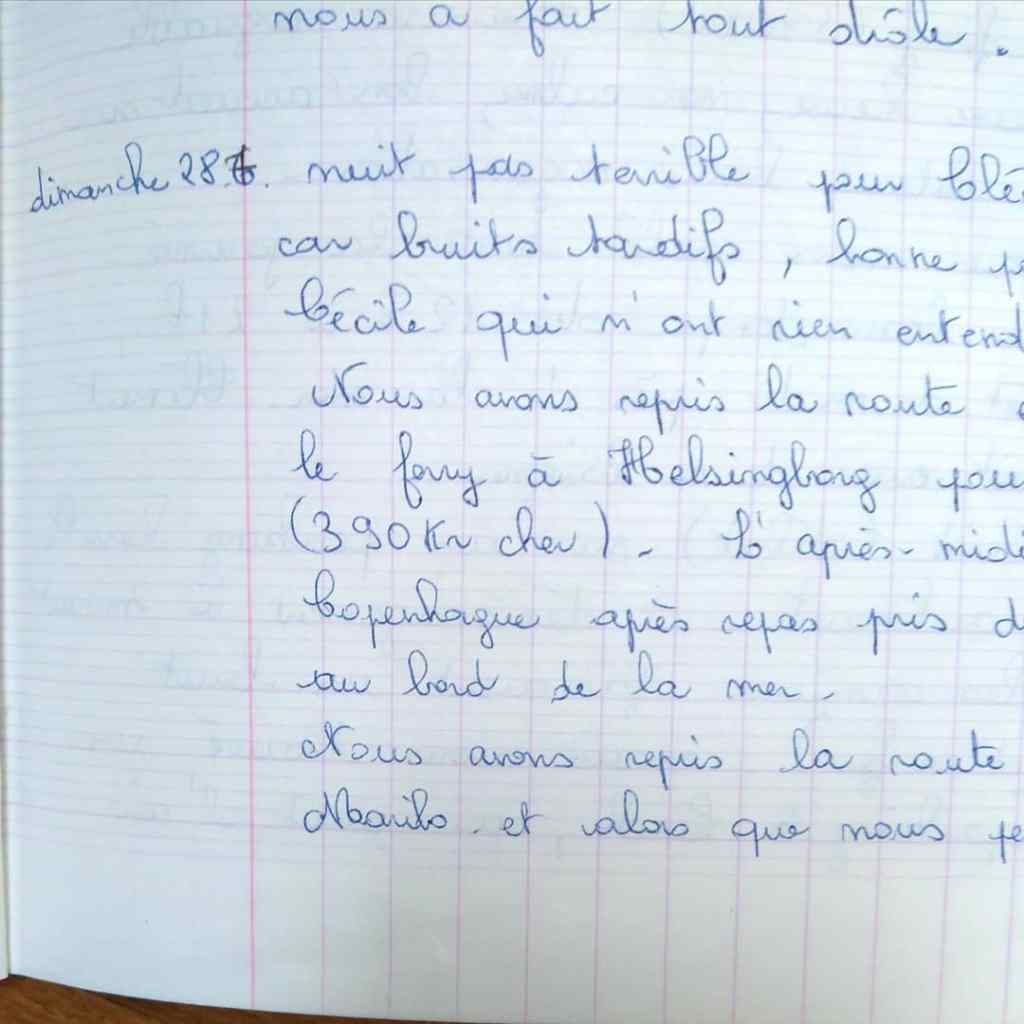 nous a fait tout drôle.
dimanche 28.6. nuit pas terrible pour Clé
car bruits tardifs, bonne p
Cécile qui n'ont rien entend
Nous avons repris la route
le ferry à Helsingborg pou
(390 Kr cher). L'après-midi
Copenhague après repas pris d
au bord de la mer.
Nous avons repris la route
Maribo. et alors que nous pe